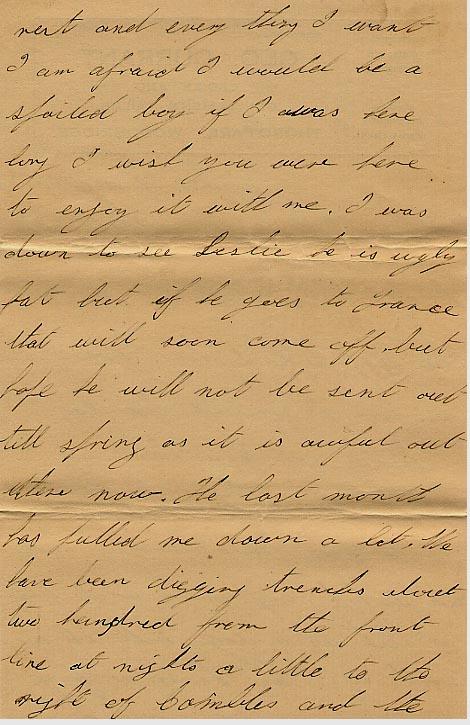 rest and every thing I want
I am afraid I would be a
spoiled boy if I was here
long I wish you were here
to enjoy it with me. I was
down to see Leslie he is ugly
fat but if he goes to France
that will soon come off but
hope he will not be sent out
till spring as it is awful out
there now. The last month
has pulled me down a lot. We
have been digging trenches about
two hundred from the front
line at nights a little to the
right of Combles and the